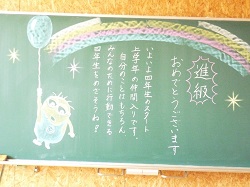 進級
おめでとうございます
いよいよ四年生のスタート
上学年の仲間入りです。
自分のことはもちろん
みんなのために行動できる
四年生をめざそうね!